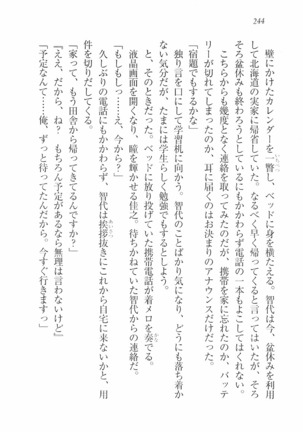 244
壁にかけたカレンダーを一瞥し、ベッドに身を横たえる。智代は今、盆休みを利用
して北海道の実家に帰省していた。なるべく早く帰ってくると言ってはいたが、そろ
そろ盆休みも終わろうとしているにもかかわらず電話の一本もよこしてはくれない。
こちらからも幾度となく連絡を取ってみたのだが、携帯を家に忘れたのか、バッテ
リーが切れてしまったのか、耳に届くのはお決まりのアナウンスだけだった。
「宿題でもするかな」
独り言を口にして学習机に向かう。智代のことばかり気になり、どうにも落ち着か
ない気分だが、たまには学生らしく勉強でもするとしよう。
と、そのときだった。ベッドに放り投げていた携帯電話が着メロを奏でる。
液晶画面を開くなり、瞳を輝かせる佳之。待ちかねていた智代からの連絡だ。
「もしもしっ……え、今から?」
久しぶりの電話にもかかわらず、智代は挨拶抜きにこれから自宅に来ないかと、用
件を切りだしてくる。
「家って、もう田舎から帰ってきてるんですか?」
『ええ、だから、ね? もちろん予定があるなら無理は言わないけど』
「予定なんて……俺、ずっと待ってたんだから。今すぐ行きますっ」